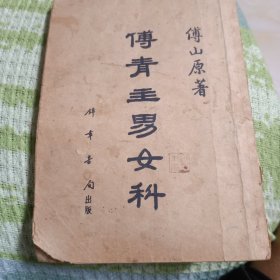 傅山原著
傅青主男女科
書局出版